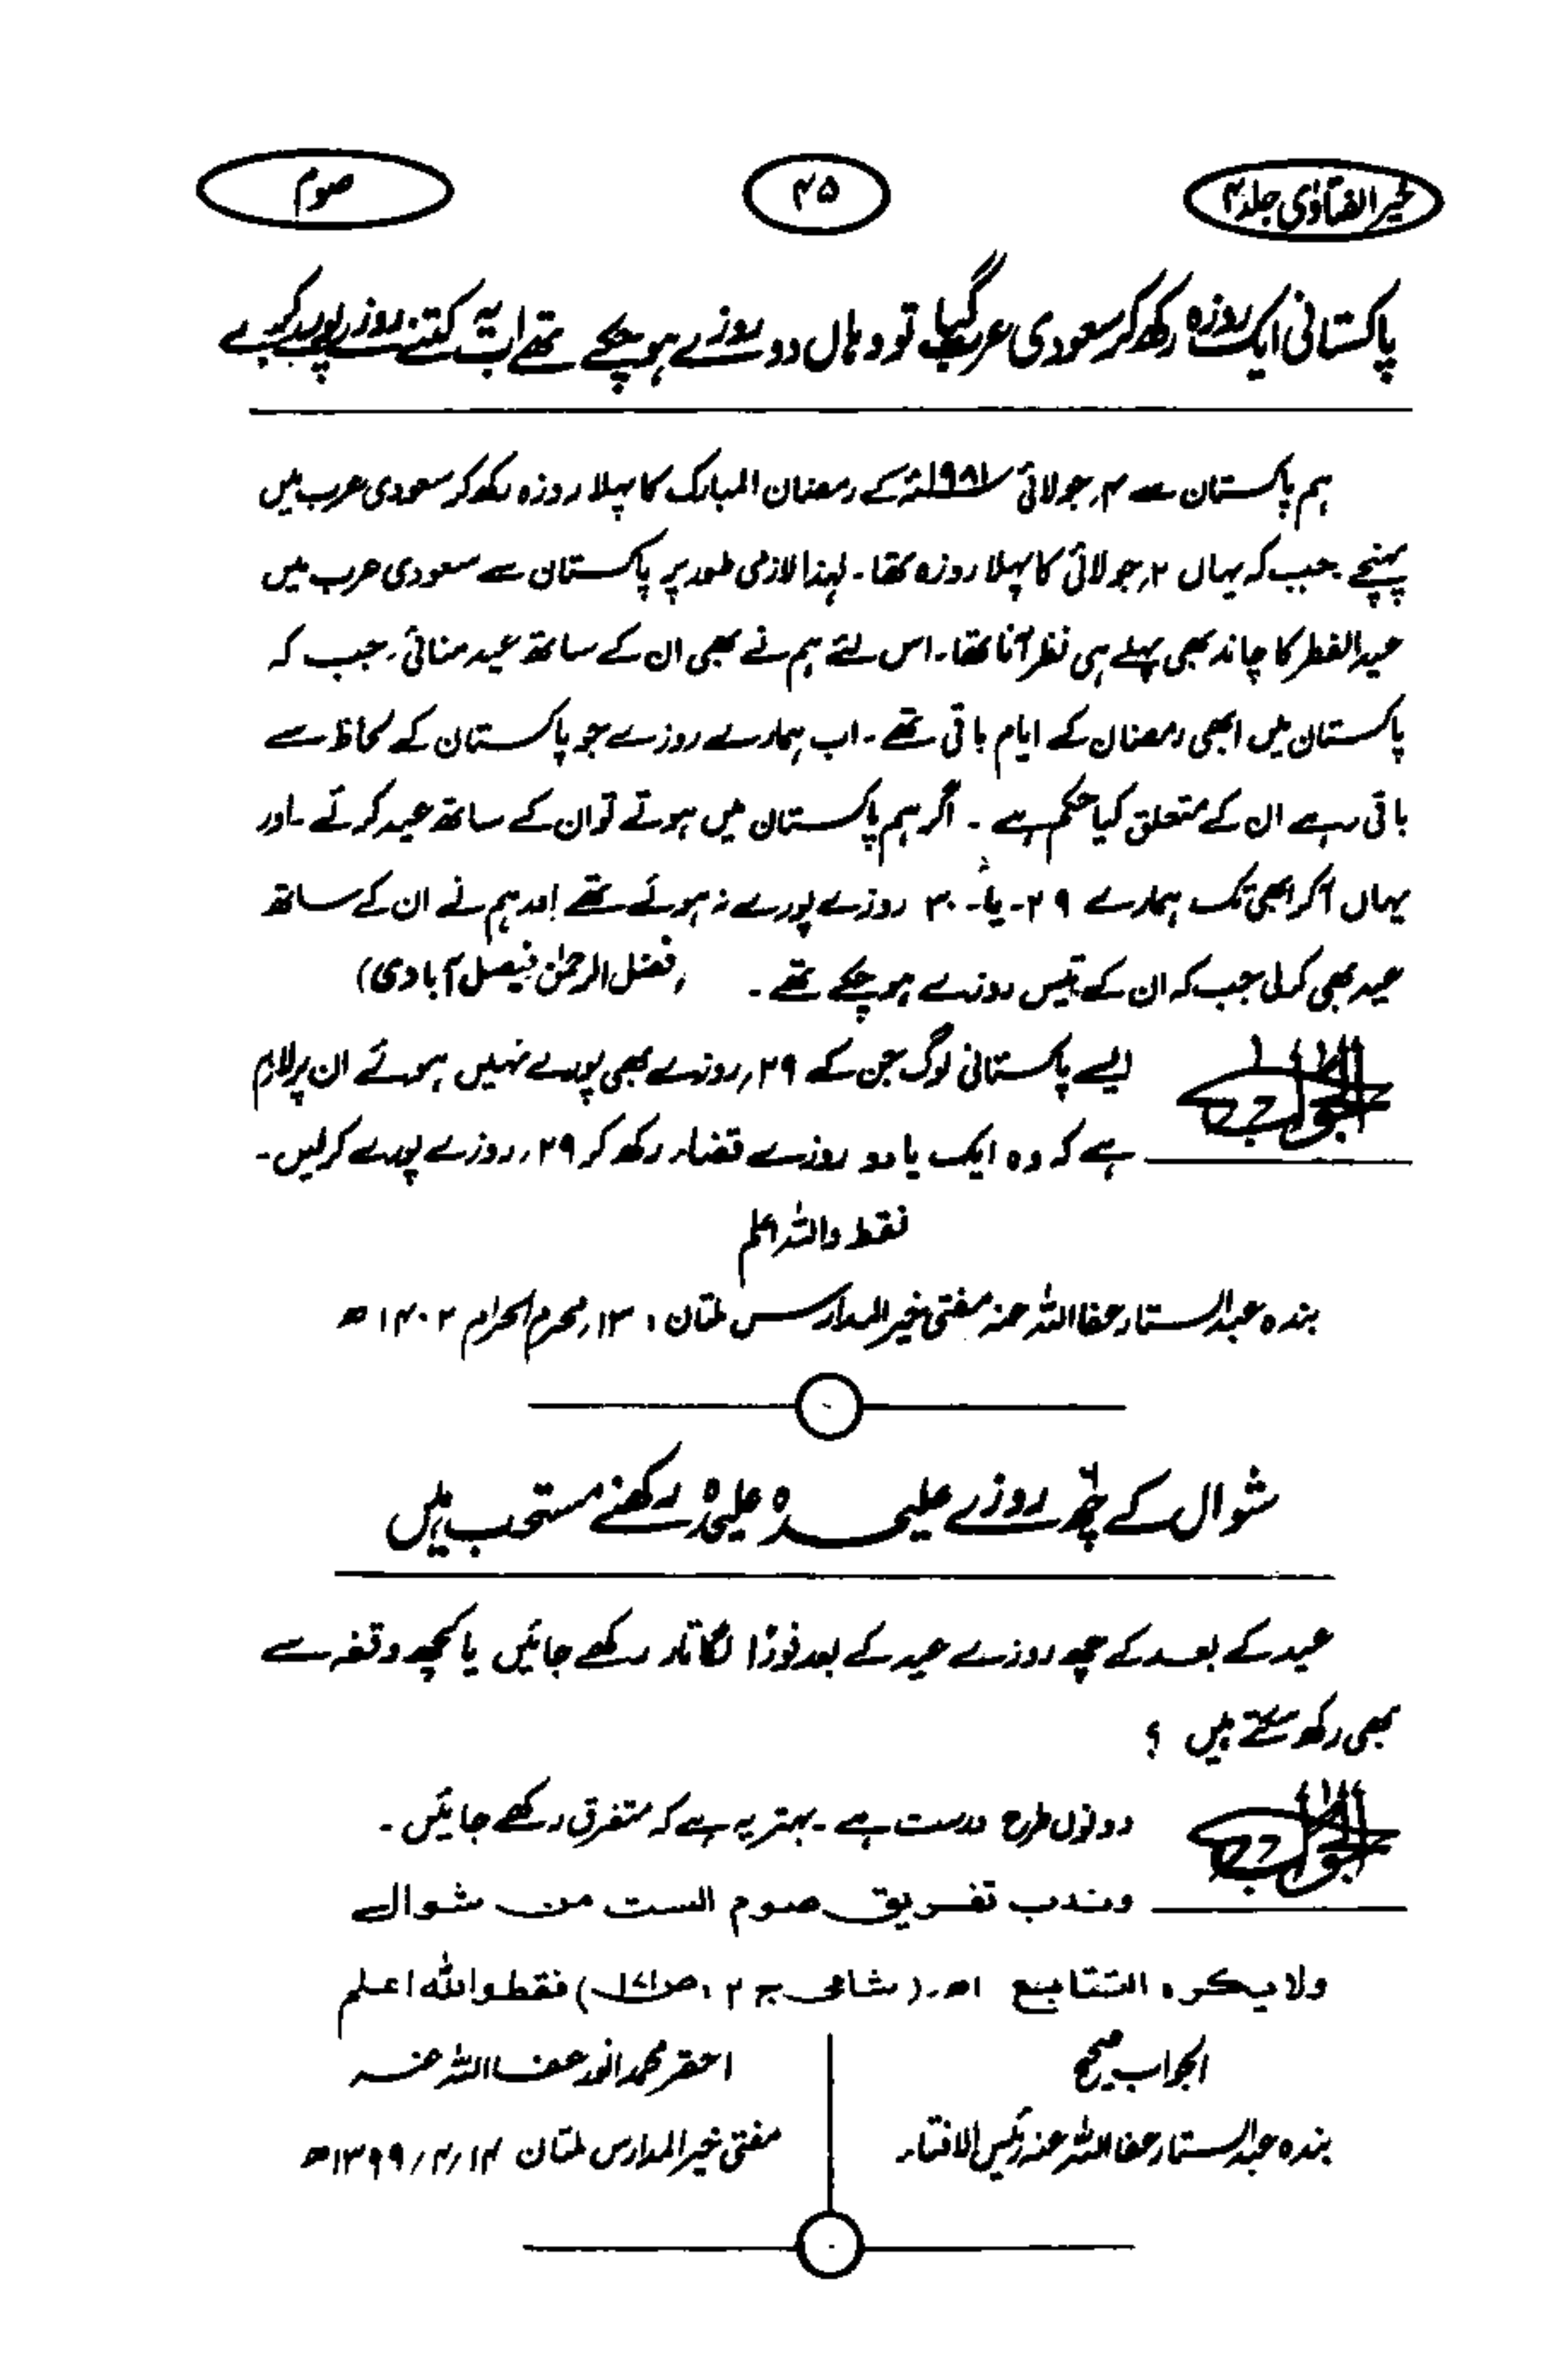 خیر الفتاویٰ جلد ۴
۴۵
صوم
پاکستانی ایک روزہ رکھ کر سعودی عرب گیا تو وہاں دو روزے ہو چکے تھے اب یہ کتنے روزے پورے کرے
ہم پاکستان سے ۴؍جولائی ۱۹۸۱ء کے رمضان المبارک کا پہلا روزہ رکھ کر سعودی عرب میں
پہنچے۔ جب کہ یہاں ۲؍جولائی کا پہلا روزہ تھا۔ لہذا لازمی طور پر پاکستان سے سعودی عرب میں
عید الفطر کا چاند بھی پہلے ہی نظر آنا تھا۔ اس لئے ہم نے بھی ان کے ساتھ عید منائی۔ جب کہ
پاکستان میں ابھی رمضان کے ایام باقی تھے۔ اب ہمارے روزے جو پاکستان کے لحاظ سے
باقی رہے ان کے متعلق کیا حکم ہے ۔ اگر ہم پاکستان میں ہوتے تو ان کے ساتھ عید کرتے ۔ اور
یہاں آکر ابھی تک ہمارے ۲۹۔ یا۔ ۳۰ روزے پورے نہ ہوئے تھے اور ہم نے ان کے ساتھ
عید بھی کر لی جب کہ ان کے تیس روزے ہو چکے تھے ۔ (فضل الرحمٰن فیصل آبادی)
الجواب ایسے پاکستانی لوگ جن کے ۲۹؍ روزے بھی پورے نہیں ہوئے ان پر لازم
ہے کہ وہ ایک یا دو روزے قضاء رکھ کر ۲۹؍ روزے پورے کر لیں۔
فقط واللہ اعلم
بندہ عبدالستار عفا اللہ عنہ مفتی خیر المدارس ملتان ، ۱۳؍محرم الحرام ۱۴۰۲ھ
شوال کے چھ روزے علیحدہ علیحدہ رکھنے مستحب ہیں
عید کے بعد کے چھ روزے عید کے بعد فوراً لگاتار رکھے جائیں یا کچھ وقفہ سے
بھی رکھ سکتے ہیں ؟
الجواب دونوں طرح درست ہے ۔ بہتر یہ ہے کہ متفرق رکھے جائیں ۔
وندب تفريق صوم الست من شوال
ولا يكره التتابع اھ۔ (شامی ج ۲ ، ص۱۷۱) فقط واللہ اعلم
الجواب صحیح
بندہ عبدالستار عفا اللہ عنہ رئیس الافتاء
احقر محمد انور عفا اللہ عنہ
مفتی خیر المدارس ملتان ۱۴؍۴؍۱۳۹۹ھ